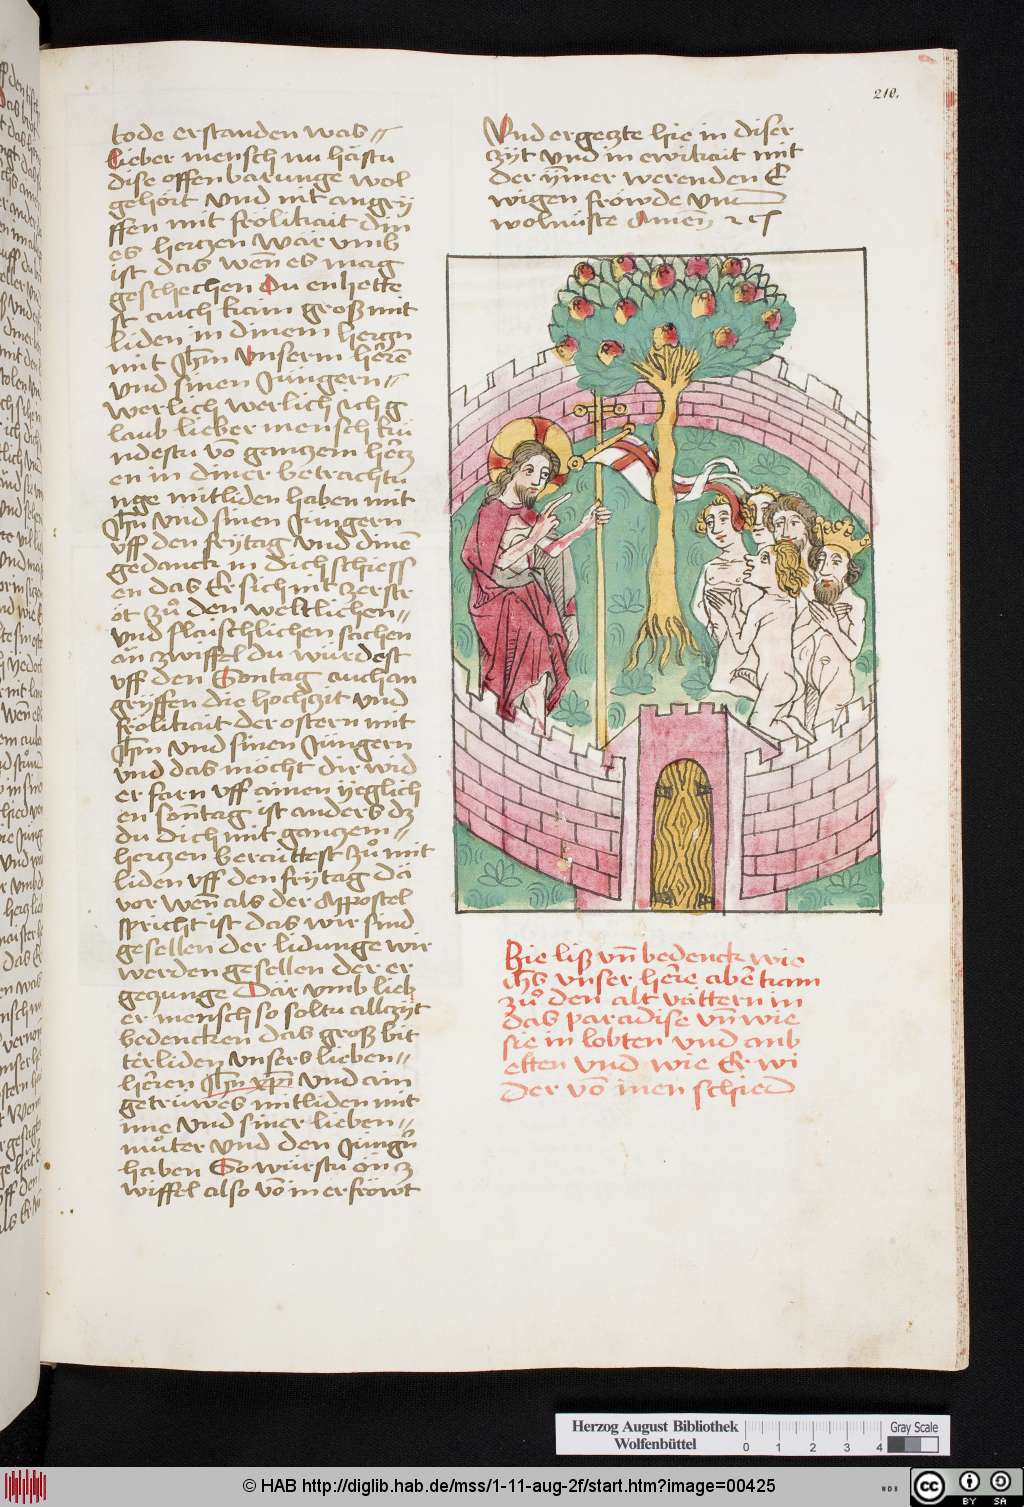 210.
tode erstanden was
lieber mensch nu hästu
dise offenbarunge wol
gehört vnd nit angrÿ
ffen mit frölikait din
es hertzen Wär vmb
ist das wen̄ es mag
geschechen Du enhette
st auch kain groß mit
liden in dinem hertzn
mit Jhm̄ vnserm herrē
vnd sinen Jüngern
werlich werlich sich g
laub lieber mensch kü
ndestu vō gantzem hertz
en in diner betrachtu
nge mitliden haben mit
Jhm̄ vnd sinen Jüngern
vff den frÿtag vnd dinē
gedanck in dich schliess
en das Er sich nit zerstr
öt zů den weltlichen
vnd flaischlichen sachen
än zwiffel du würdest
vff den Sontag auch an
grÿffen die hochzit vnd
frölikait der ostern mit
Jhm̄ vnd sinen Jüngern
vnd das möcht dir wid
er farn vff ainen ÿeglich
en sonntag ist anders dz
du dich mit gantzem
hertzen beraittest zů mit
liden vff den frÿtag dā
vor wen̄ als der Appostel
spricht ist das wir sind
gesellen der lidunge wir
werden gesellen der er
getzunge Där vmb lieb
er mensch so soltu allzÿt
bedencken das groß bit
ter liden vnsers lieben
herren Jhm̄ xpī vnd ain
getrüwes mitliden mit
ime vnd siner lieben
můter vnd den Jüngn̄
haben So würstu ön z
wiffel also vō in erfröwt
Vnd ergetzte hie in diser
zÿt vnd in ewikait mit
der ÿmer werenden E
wigen fröwde vnd
wolnüste Amen ꝛ cꝭ
Hie liß vn̄ bedenck wie
ihs vnser here aber kam
zů den alt vättern in
das paradise vn̄ wie
sie in lobten vnd anb
etten vnd wie Er wi
der vō inen schied
Herzog August Bibliothek
Wolfenbüttel
0 1 2 3 4
Gray Scale
© HAB http://diglib.hab.de/mss/1-11-aug-2f/start.htm?image=00425
WDB
cc BY SA